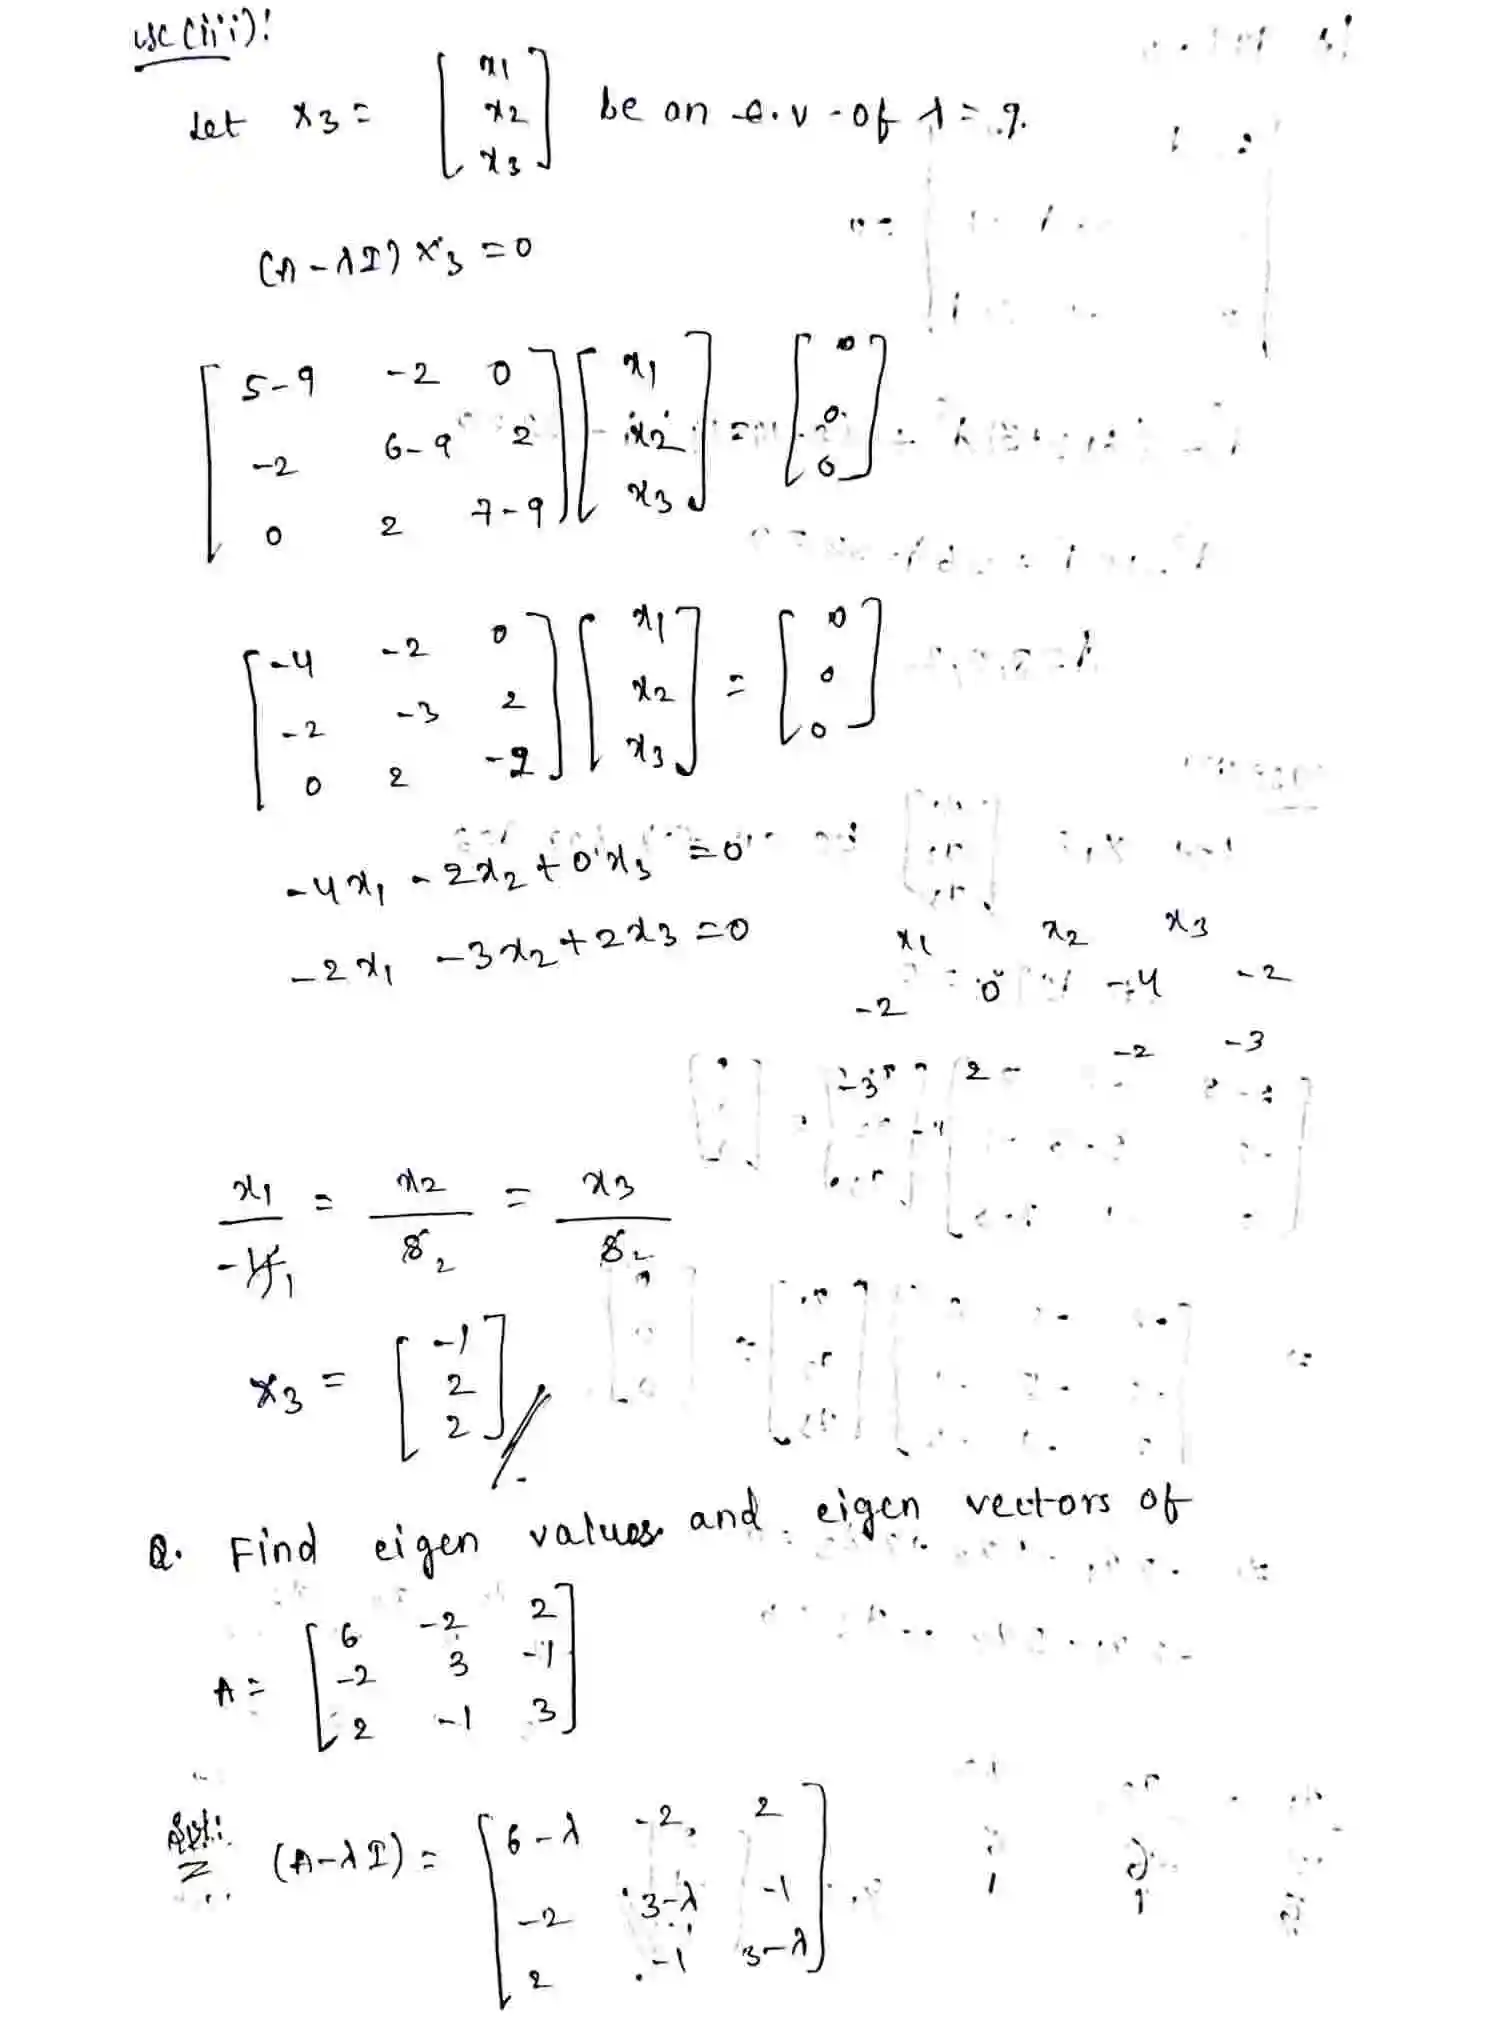 (iii):
Let x3 = [ x1 x2 x3 ] be an e.v. of λ = 9.
(A - λI) x3 = 0
[ 5-9 -2 0 ] [ x1 ] = [ 0 ]
[ -2 6-9 2 ] [ x2 ] [ 0 ]
[ 0 2 7-9 ] [ x3 ] [ 0 ]
[ -4 -2 0 ] [ x1 ] = [ 0 ]
[ -2 -3 2 ] [ x2 ] [ 0 ]
[ 0 2 -2 ] [ x3 ] [ 0 ]
-4x1 - 2x2 + 0x3 = 0
-2x1 -3x2 + 2x3 = 0
x1 x2 x3
-2 0 -4 -2
-3 2 -2 -3
x1 = x2 = x3
-4 1 8 2 8 2
x3 = [ -1 2 2 ]
Q. Find eigen values and eigen vectors of
A = [ 6 -2 2 ]
[ -2 3 -1 ]
[ 2 -1 3 ]
Sol:
(A-λI) = [ 6-λ -2 2 ]
[ -2 3-λ -1 ]
[ 2 -1 3-λ ]